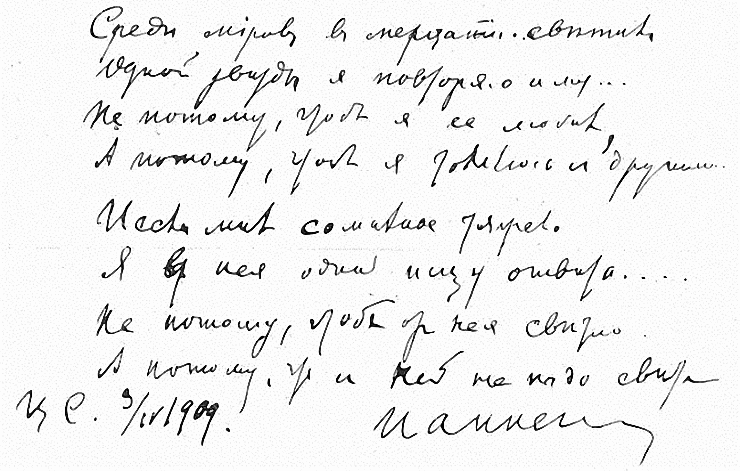 Среди мiровъ, въ мерцанiи свѣтилъ
Одной звѣзды я повторяю имя...
Не потому, чтобъ я ее любилъ,
А потому, что я томлюсь съ другими.
И если мнѣ сомнѣнье тяжело,
Я у нея одной ищу отвѣта....
Не потому, чтобъ отъ нея свѣтло
А потому, что съ ней не надо свѣта
Ц С. 3/IV 1909.
И Анненск